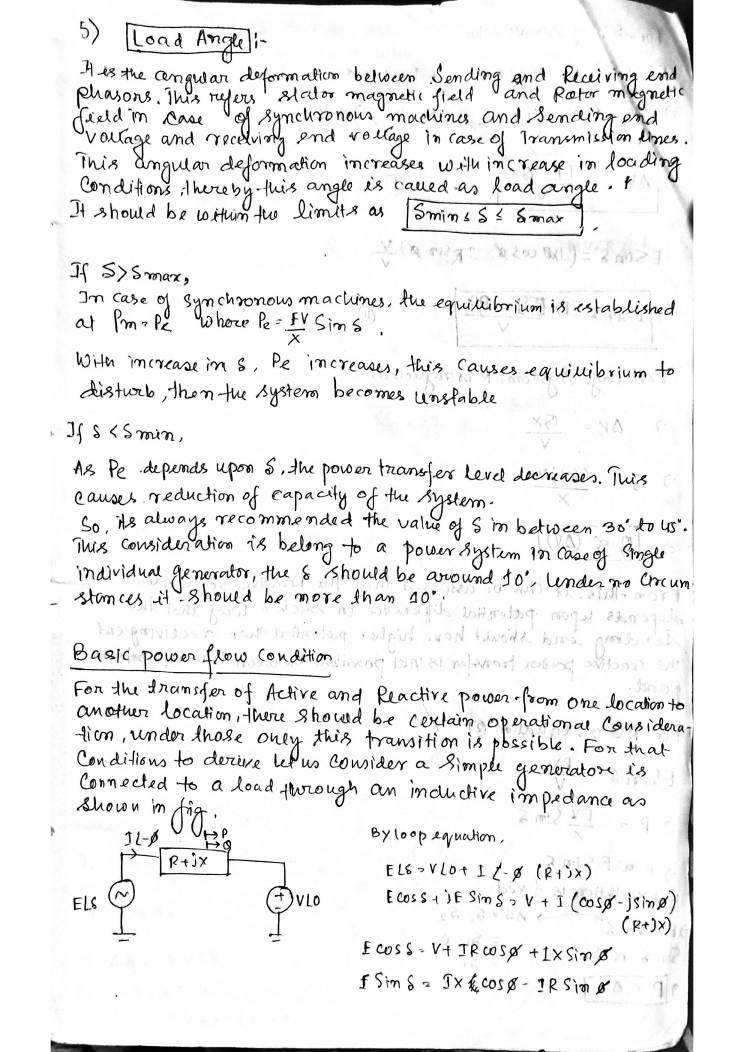 5) Load Angle :-
It is the angular deformation between Sending and Receiving end
phasors. This refers stator magnetic field and Rotor magnetic
field in case of synchronous machines and Sending end
voltage and receiving end voltage in case of Transmission lines.
This angular deformation increases with increase in loading
Conditions, thereby this angle is called as load angle.
It should be within the limits as δmin ≤ δ ≤ δmax
If δ>δmax,
In case of synchronous machines, the equilibrium is established
at Pm = Pe where Pe = EV/X Sin δ.
With increase in δ, Pe increases, this causes equilibrium to
disturb, then the system becomes unstable
If δ < δmin,
As Pe depends upon δ, the power transfer level decreases. This
causes reduction of capacity of the system.
So, its always recommended the value of δ in between 30° to 45°.
This consideration is belong to a power system in case of single
individual generator, the δ should be around 10°, Under no circum
stances it should be more than 10°.
Basic power flow condition
For the transfer of Active and Reactive power from one location to
another location, there should be certain operational considera-
tion, under those only this transition is possible. For that
Conditions to derive let us consider a simple generator is
Connected to a load through an inductive impedance as
shown in fig.
I∠-ø
→P
→Q
R+jX
E∠δ
V∠0
By loop equation,
E∠δ = V∠0 + I∠-ø (R+jX)
E cos δ + jE Sin δ = V + I (cosø - jsinø)
(R+jX)
E cos δ = V + IR cosø + IX Sin ø
E Sin δ = IX cosø - IR Sin ø